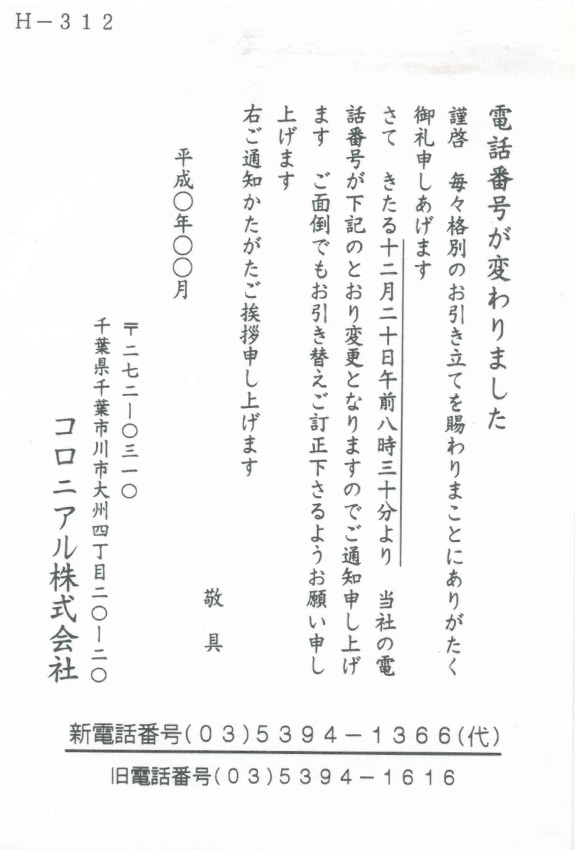 H－312
電話番号が変わりました
謹啓　毎々格別のお引き立てを賜わりまことにありがたく
御礼申しあげます
さて　きたる十二月二十日午前八時三十分より　当社の電
話番号が下記のとおり変更となりますのでご通知申し上げ
ます　ご面倒でもお引き替えご訂正下さるようお願い申し
上げます
右ご通知かたがたご挨拶申し上げます
敬　具
平成〇年〇〇月
〒二七二－〇三一〇
千葉県千葉市川市大州四丁目二〇－二〇
コロニアル株式会社
新電話番号(０３)５３９４－１３６６(代)
旧電話番号(０３)５３９４－１６１６